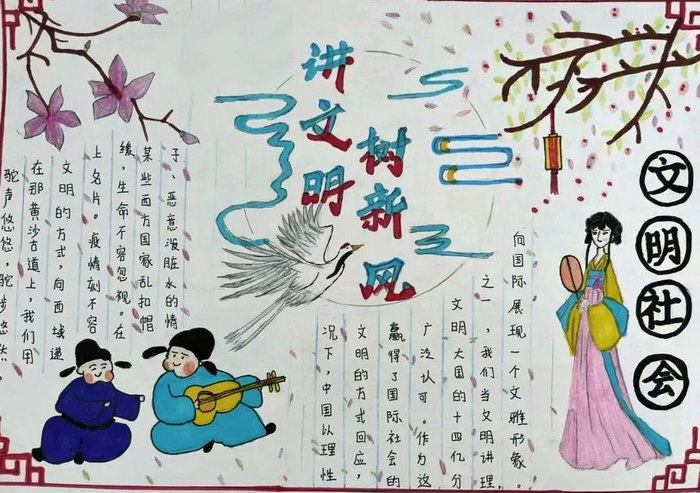 讲文明
树新风
文明社会
驼声悠悠，驼步悠然。
在那黄沙古道上，我们用
文明的方式，向西域递
上名片。疫情刻不容
缓，生命不容忽视。在
某些西方国家乱扣帽
子、恶意泼脏水的情
况下，中国以理性
文明的方式回应，
赢得了国际社会的
广泛认可。作为这
文明大国的十四亿分
之一，我们当文明讲理，
向国际展现一个文雅形象。